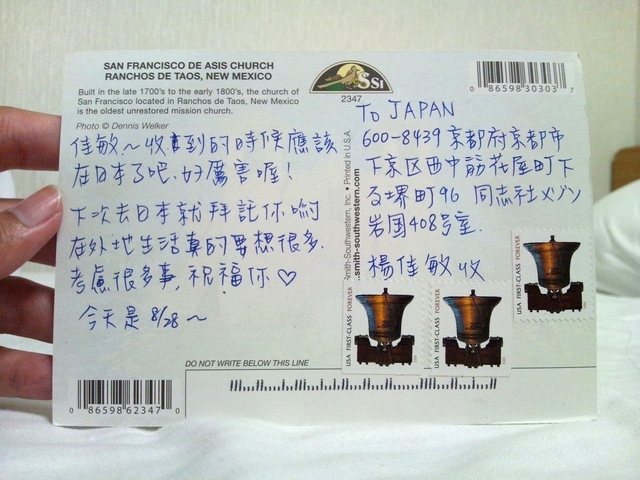 SAN FRANCISCO DE ASIS CHURCH
RANCHOS DE TAOS, NEW MEXICO
Built in the late 1700's to the early 1800's, the church of
San Francisco located in Ranchos de Taos, New Mexico
is the oldest unrestored mission church.
Photo © Dennis Welker
SSI
2347
0 86598 30303 7
佳敏~收到的時候應該
在日本了吧,好厲害喔!
下次去日本就拜託你喲
在外地生活真的要想很多,
考慮很多事,祝福你♡
今天是 8/28~
To JAPAN
600-8439 京都府京都市
下京区西中筋花屋町下
る堺町96 同志社メゾン
岩国408号室.
楊佳敏 收
Smith-Southwestern, Inc. • Printed in U.S.A.
.smith-southwestern.com
USA FIRST-CLASS FOREVER
USA FIRST-CLASS FOREVER
USA FIRST-CLASS FOREVER
DO NOT WRITE BELOW THIS LINE
0 86598 62347 0